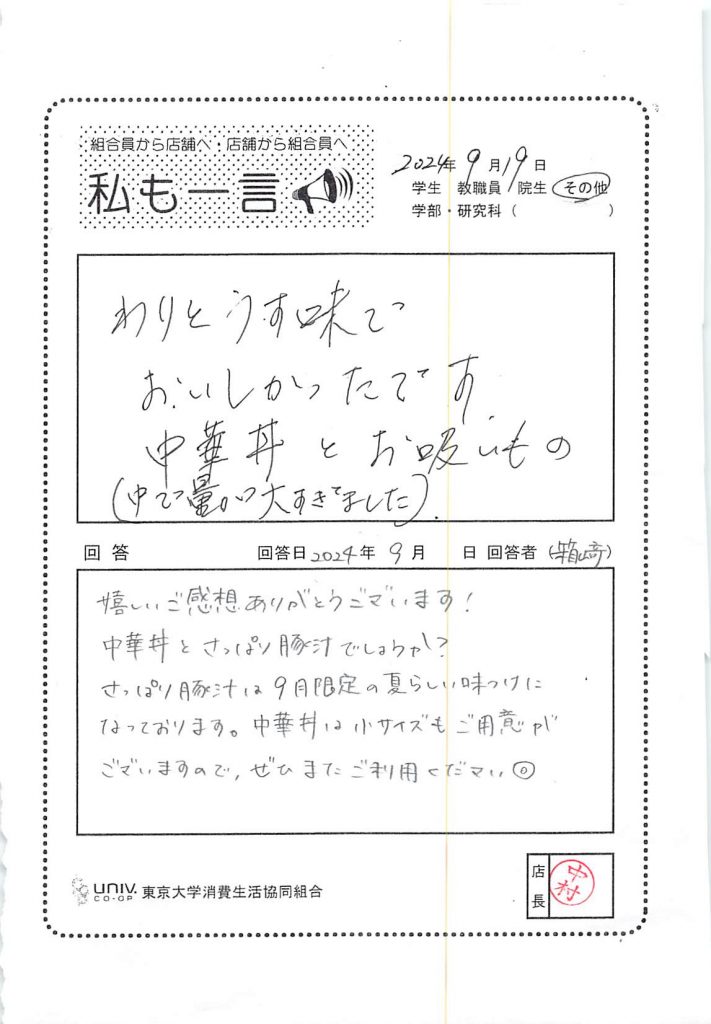 組合員から店舗へ・店舗から組合員へ
私も一言
2024年 9月19日
学生 教職員 院生 その他
学部・研究科（　　　）
わりとうす味で
おいしかったです
中華丼とお吸いもの
(中で量が大すぎました).
回答 回答日2024年 9月 日 回答者(箱崎)
嬉しいご感想ありがとうございます!
中華丼とさっぱり豚汁でしょうか?
さっぱり豚汁は9月限定の夏らしい味つけに
なっております。中華丼は小サイズもご用意が
ございますので、ぜひまたご利用ください◎
UNIV. CO-OP 東京大学消費生活協同組合
店長 中村